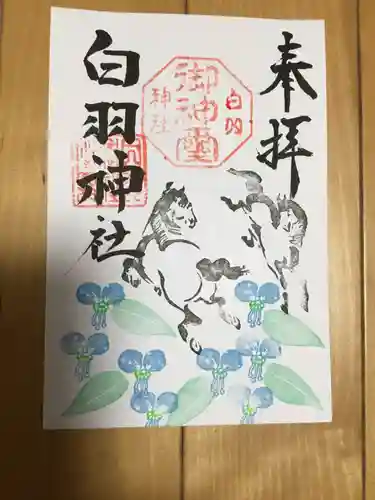 奉拝
白羽
神社
御神璽
白羽神社